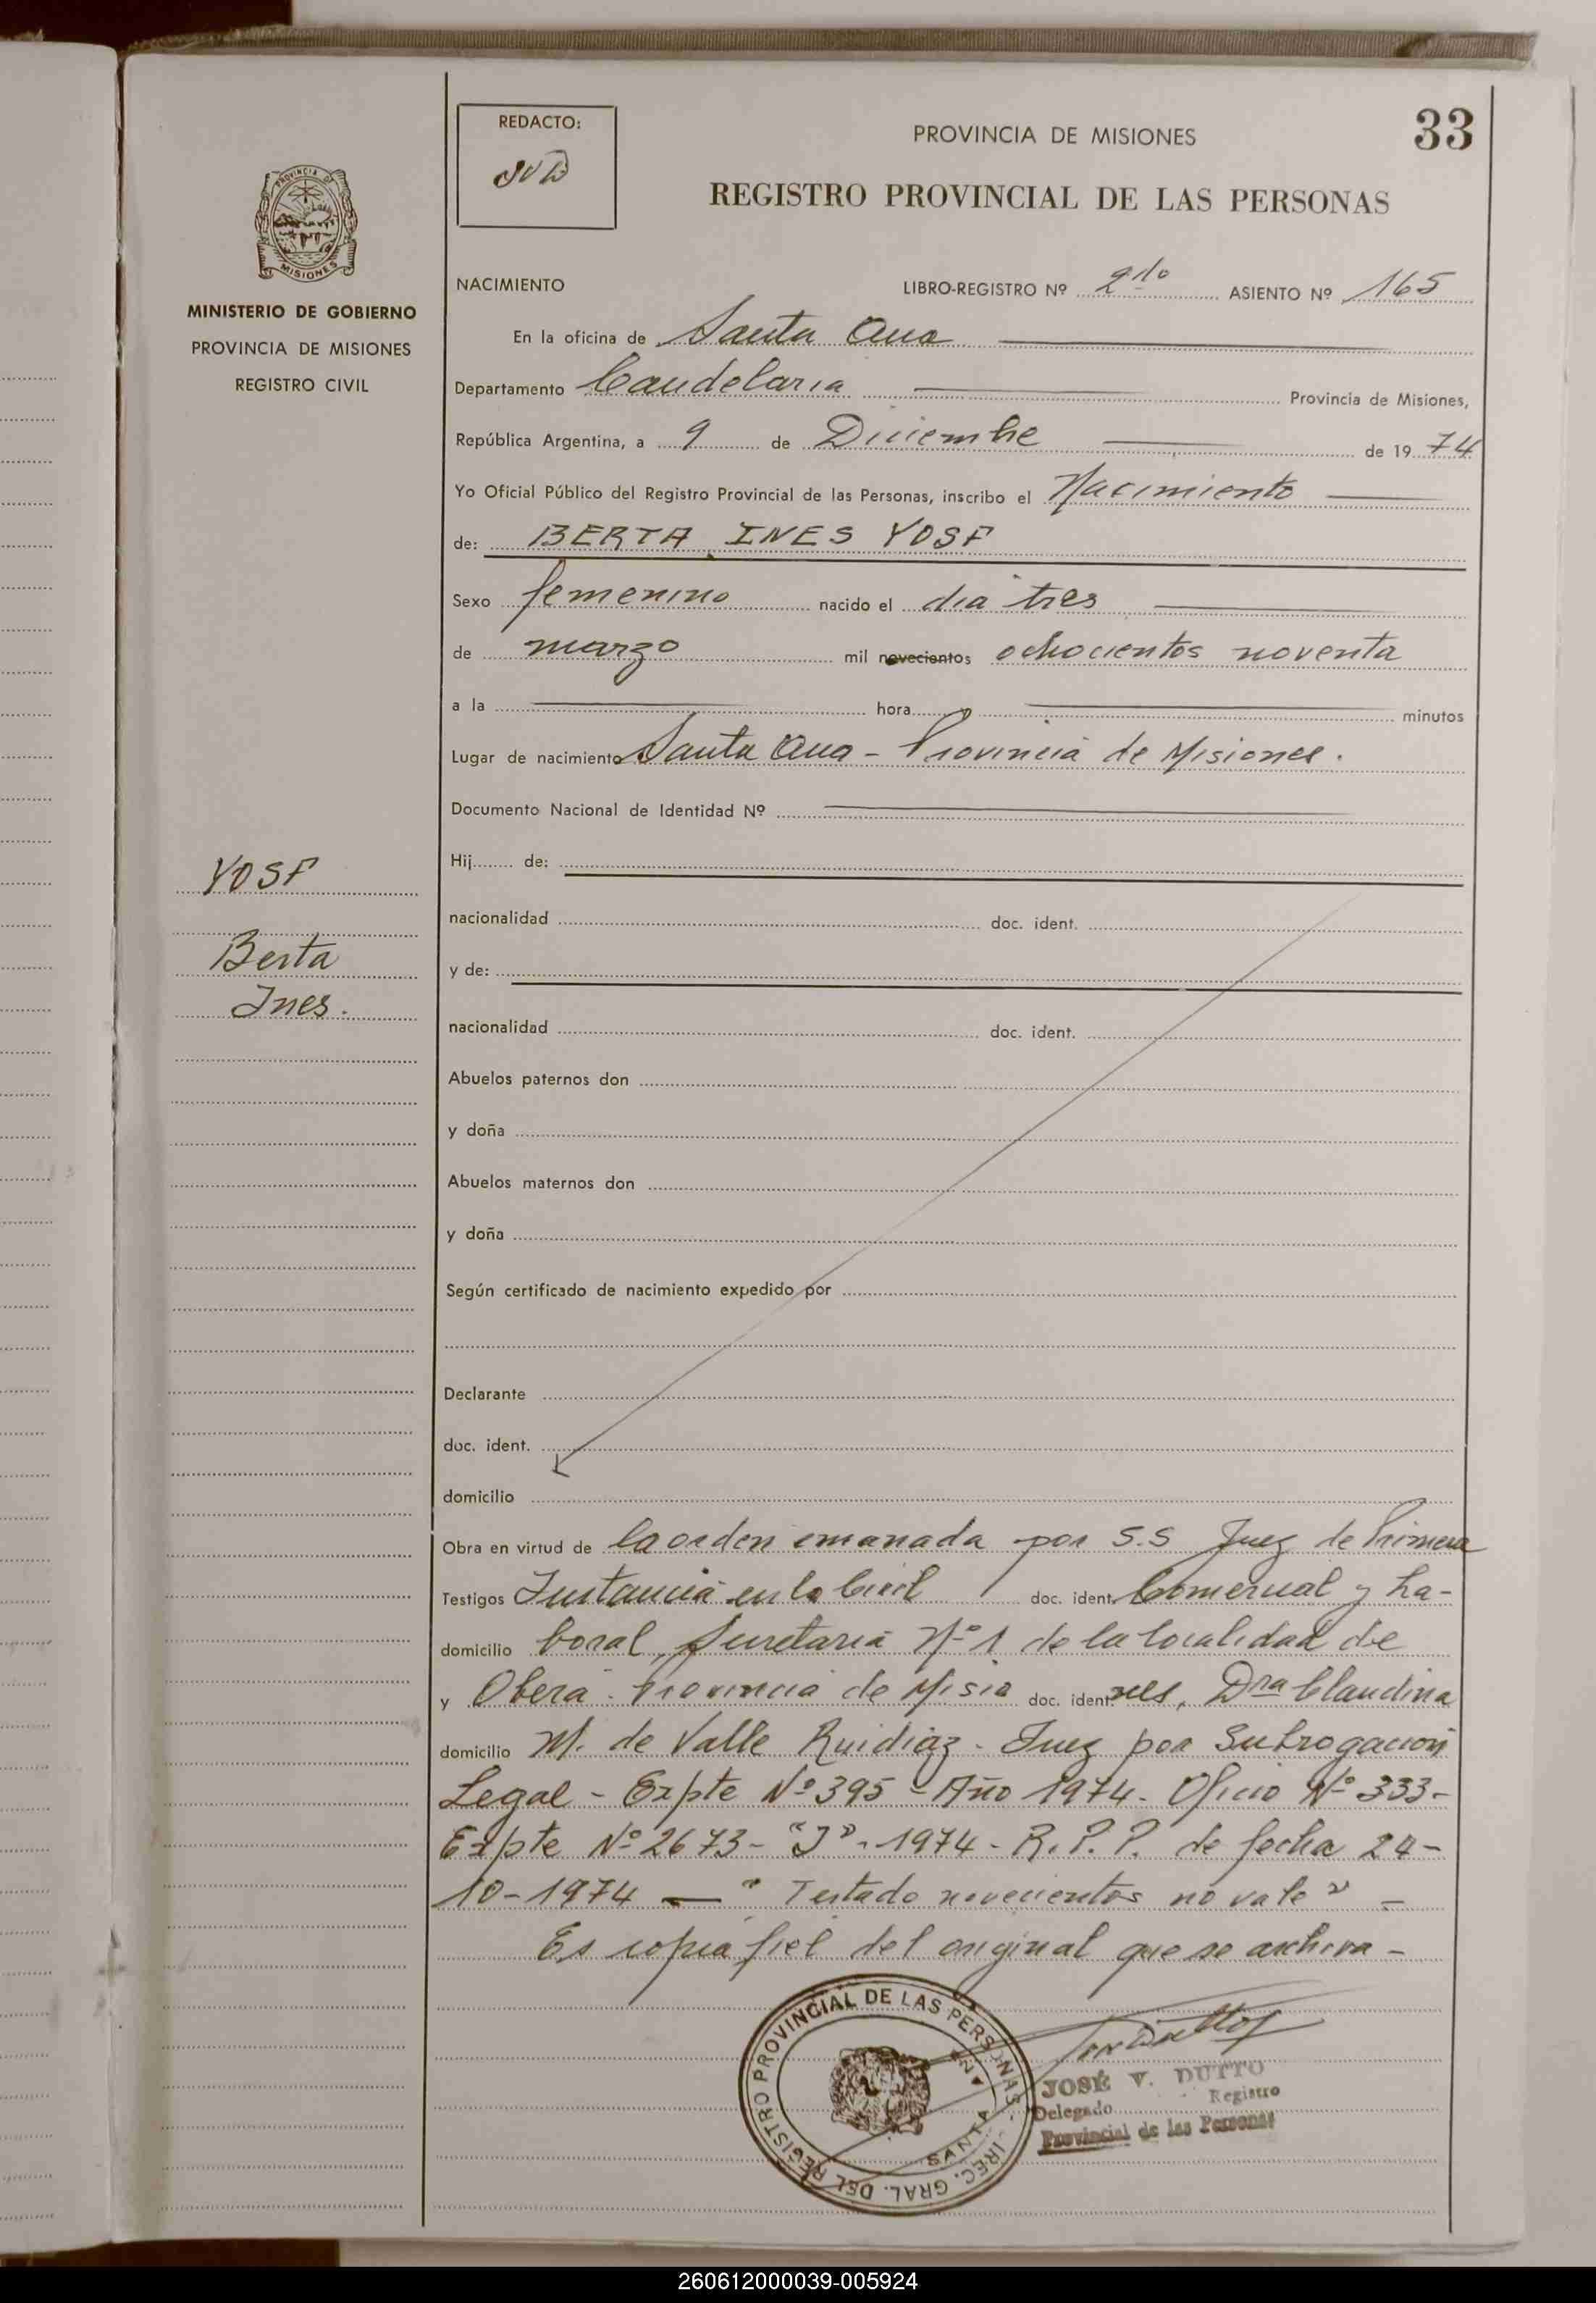 33
REDACTO:
PROVINCIA DE MISIONES
REGISTRO PROVINCIAL DE LAS PERSONAS
PROVINCIA DE
MISIONES
MINISTERIO DE GOBIERNO
PROVINCIA DE MISIONES
REGISTRO CIVIL
NACIMIENTO LIBRO-REGISTRO Nº 2do ASIENTO Nº 165
En la oficina de Santa Ana
Departamento Candelaria Provincia de Misiones,
República Argentina, a 9 de Diciembre de 1974
Yo Oficial Público del Registro Provincial de las Personas, inscribo el Nacimiento
de: BERTA INES YOSF
Sexo femenino nacido el dia tres
de marzo mil novecientos ochocientos noventa
a la hora minutos
Lugar de nacimiento Santa Ana - Provincia de Misiones.
Documento Nacional de Identidad Nº
Hij de:
YOSF
nacionalidad doc. ident.
Berta
y de:
Ines.
nacionalidad doc. ident.
Abuelos paternos don
y doña
Abuelos maternos don
y doña
Según certificado de nacimiento expedido por
Declarante
doc. ident.
domicilio
Obra en virtud de la orden emanada por S.S Juez de Primera
Testigos Instancia en lo Civil doc. ident. Comercial y La-
domicilio boral, Secretaria Nº 1 de la localidad de
y Obera - Provincia de Misio doc. ident. nes, Dra Claudina
domicilio M. de Valle Ruidiaz - Juez por Subrogacion
Legal - Expte Nº 395 - Año 1974 - Oficio Nº 333-
Expte Nº 2673 - "J" - 1974 - R.P.P. de fecha 24-
10-1974 — " Testado novecientos no vale " -
Es copia fiel del original que se archiva -
REGISTRO PROVINCIAL DE LAS PERSONAS - IREC. GRAL. DEL
SANTA ANA
JOSÉ V. DUTTO
Delegado Registro
Provincial de las Personas
260612000039-005924